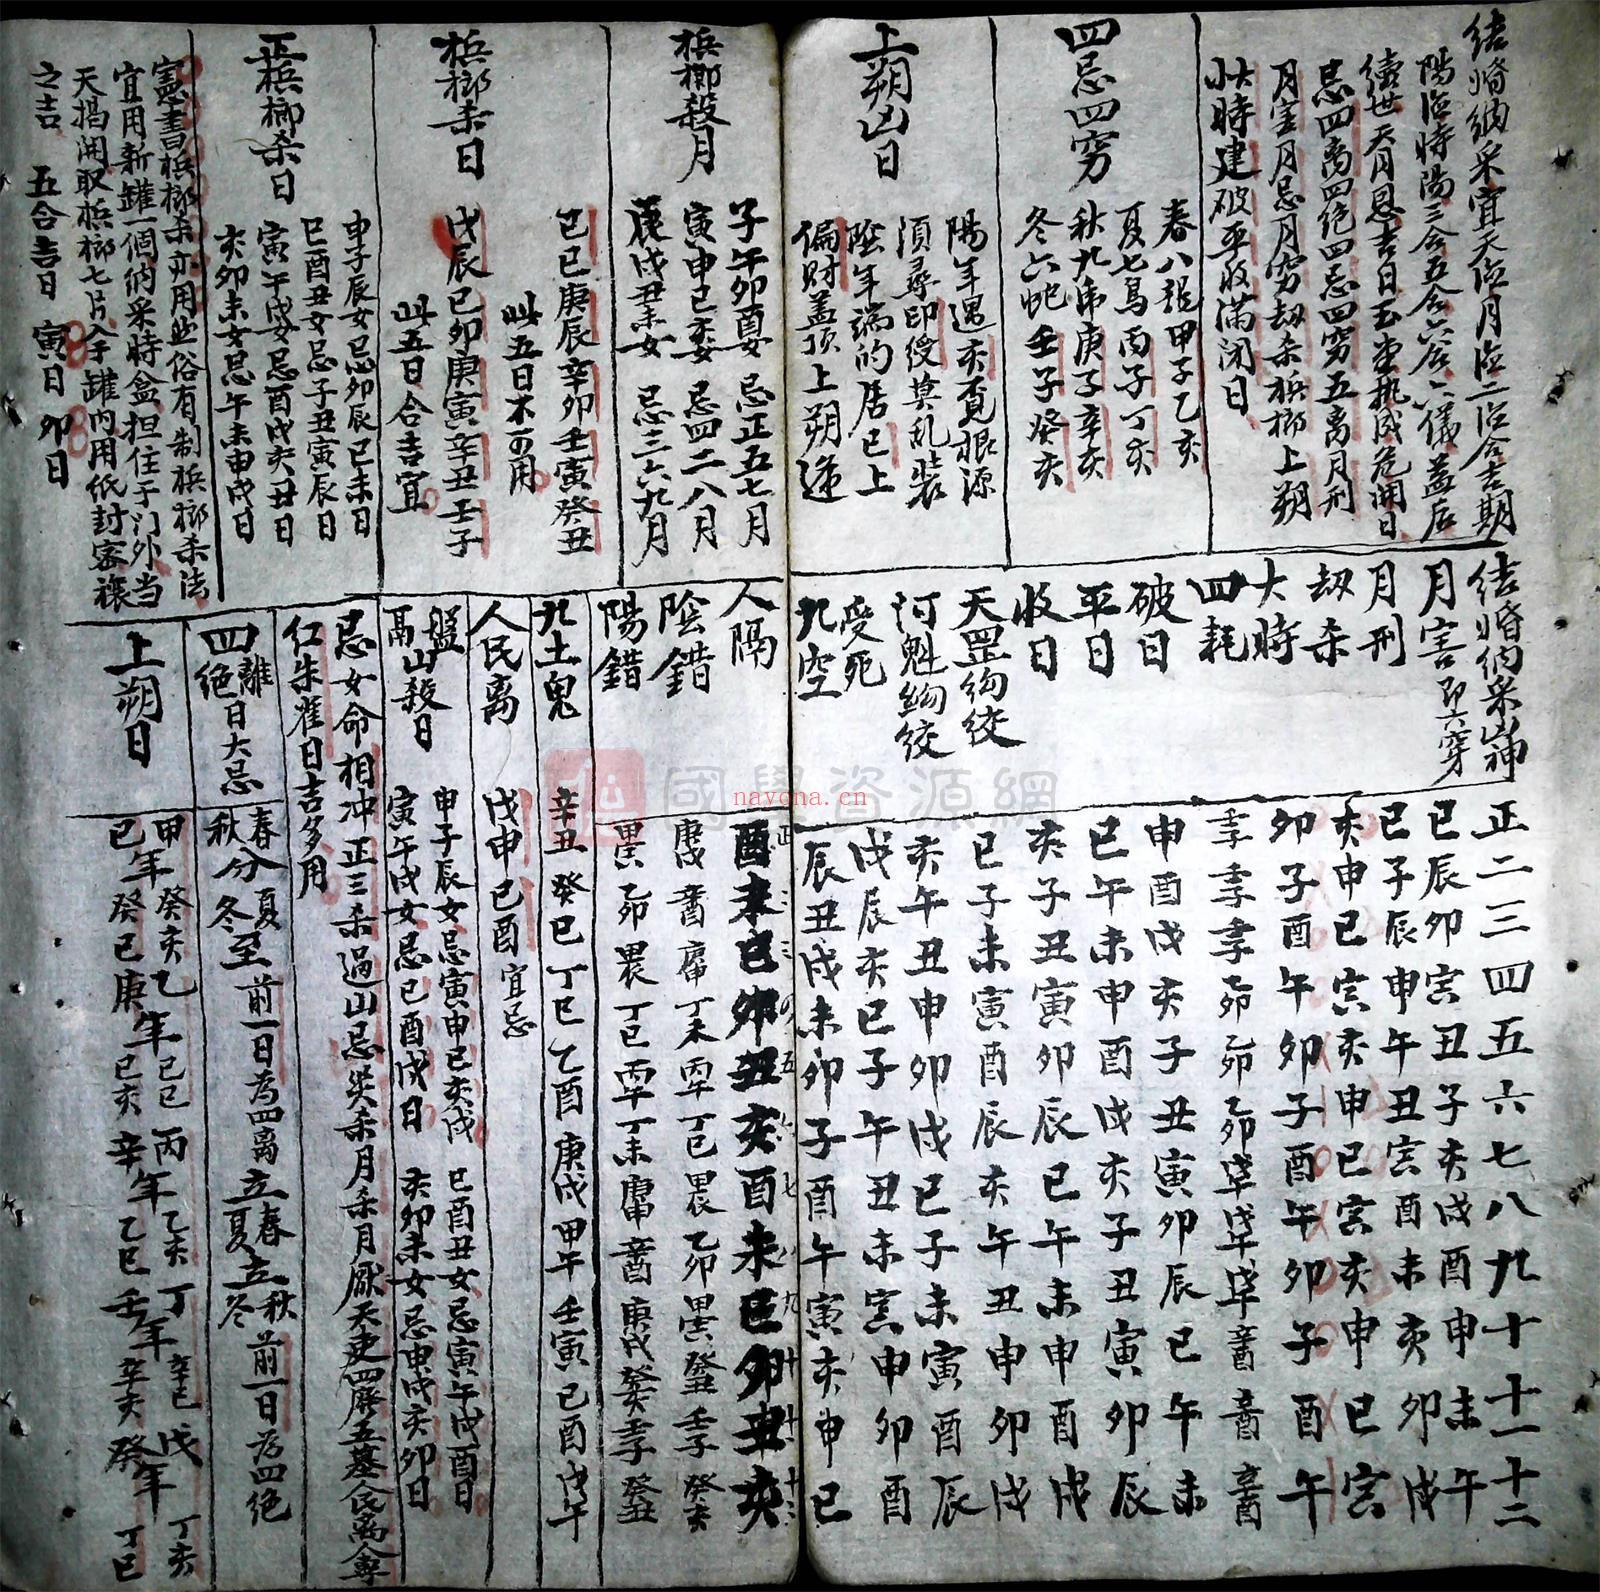 结婚纳采宜天德月德二德合吉期
陽德時陽三合五合六合六儀益后
續世天月恩吉日玉堂執成危開日
忌四离四绝四忌四穷五离月刑
月害月忌月穷劫杀梹榔上朔
大時建破平收滿闭日
四忌四穷
春八龍甲子乙亥
夏七鳥丙子丁亥
秋九虎庚子辛亥
冬六蛇壬子癸亥
上朔凶日
陽年遇亥覔根源
須尋印綬莫乱装
陰年端的居巳上
偏財盖頂上朔逢
梹榔殺月
子午卯酉女 忌正五七月
寅申巳亥女 忌四二八月
辰戌丑未女 忌三六九月
梹榔杀日
己巳庚辰辛卯壬寅癸丑
此五日不可用
戊辰己卯庚寅辛丑壬子
此五日合吉宜
正梹榔杀日
申子辰女忌卯辰巳未日
巳酉丑女忌子丑寅辰日
寅午戌女忌酉戌亥丑日
亥卯未女忌午未申戌日
憲書梹榔杀亦用些俗有制梹榔杀法
宜用新罐一個纳采時盒担住于门外当
天揭開取梹榔七片全于罐内用纸封密禳
之吉 五合吉日 寅日 卯日
结婚纳采凶神 正二三四五六七八九十十一十二
月害即六穿 巳辰卯寅丑子亥戌酉申未午
月刑 巳子辰申午丑寅酉未亥卯戌
劫杀 亥申巳寅亥申巳寅亥申巳寅
大時 卯子酉午卯子酉午卯子酉午
四耗 壬子壬子壬子乙卯乙卯乙卯戊午戊午戊午辛酉辛酉辛酉
破日 申酉戌亥子丑寅卯辰巳午未
平日 巳午未申酉戌亥子丑寅卯辰
收日 亥子丑寅卯辰巳午未申酉戌
天罡勾绞 巳子未寅酉辰亥午丑申卯戌
河魁勾绞 亥午丑申卯戌巳子未寅酉辰
受死 戌辰亥巳子午丑未寅申卯酉
九空 辰丑戌未卯子酉午寅亥申巳
正二三四五六七八九十十一十二
人隔 酉未巳卯丑亥酉未巳卯丑亥
陰錯 庚戌辛酉庚申丁未丙午丁巳甲辰乙卯甲寅癸丑壬子癸亥
陽錯 甲寅乙卯甲辰丁巳丙午丁未庚申辛酉庚戌癸亥壬子癸丑
九土鬼 辛丑癸巳丁巳乙酉庚戌甲午壬寅己酉戊午
人民离 戊申己酉宜忌
盤山殺日 申子辰女忌寅申巳亥戌 巳酉丑女忌寅午戌酉日
鬲 寅午戌女忌巳酉戌日 亥卯未女忌申戌亥卯日
忌女命相冲正三杀過山忌災杀月杀月厭天吏四廢五墓人民离全尃
仁朱雀日吉多用
四離绝日大忌 春秋分夏冬至前一日為四离立春立夏立秋立冬前一日为四绝
上朔日 甲年癸亥乙年己巳丙年乙亥丁年辛巳戊年丁亥
己年癸巳庚年己亥辛年乙巳壬年辛亥癸年丁巳
國學資源網
navona.cn